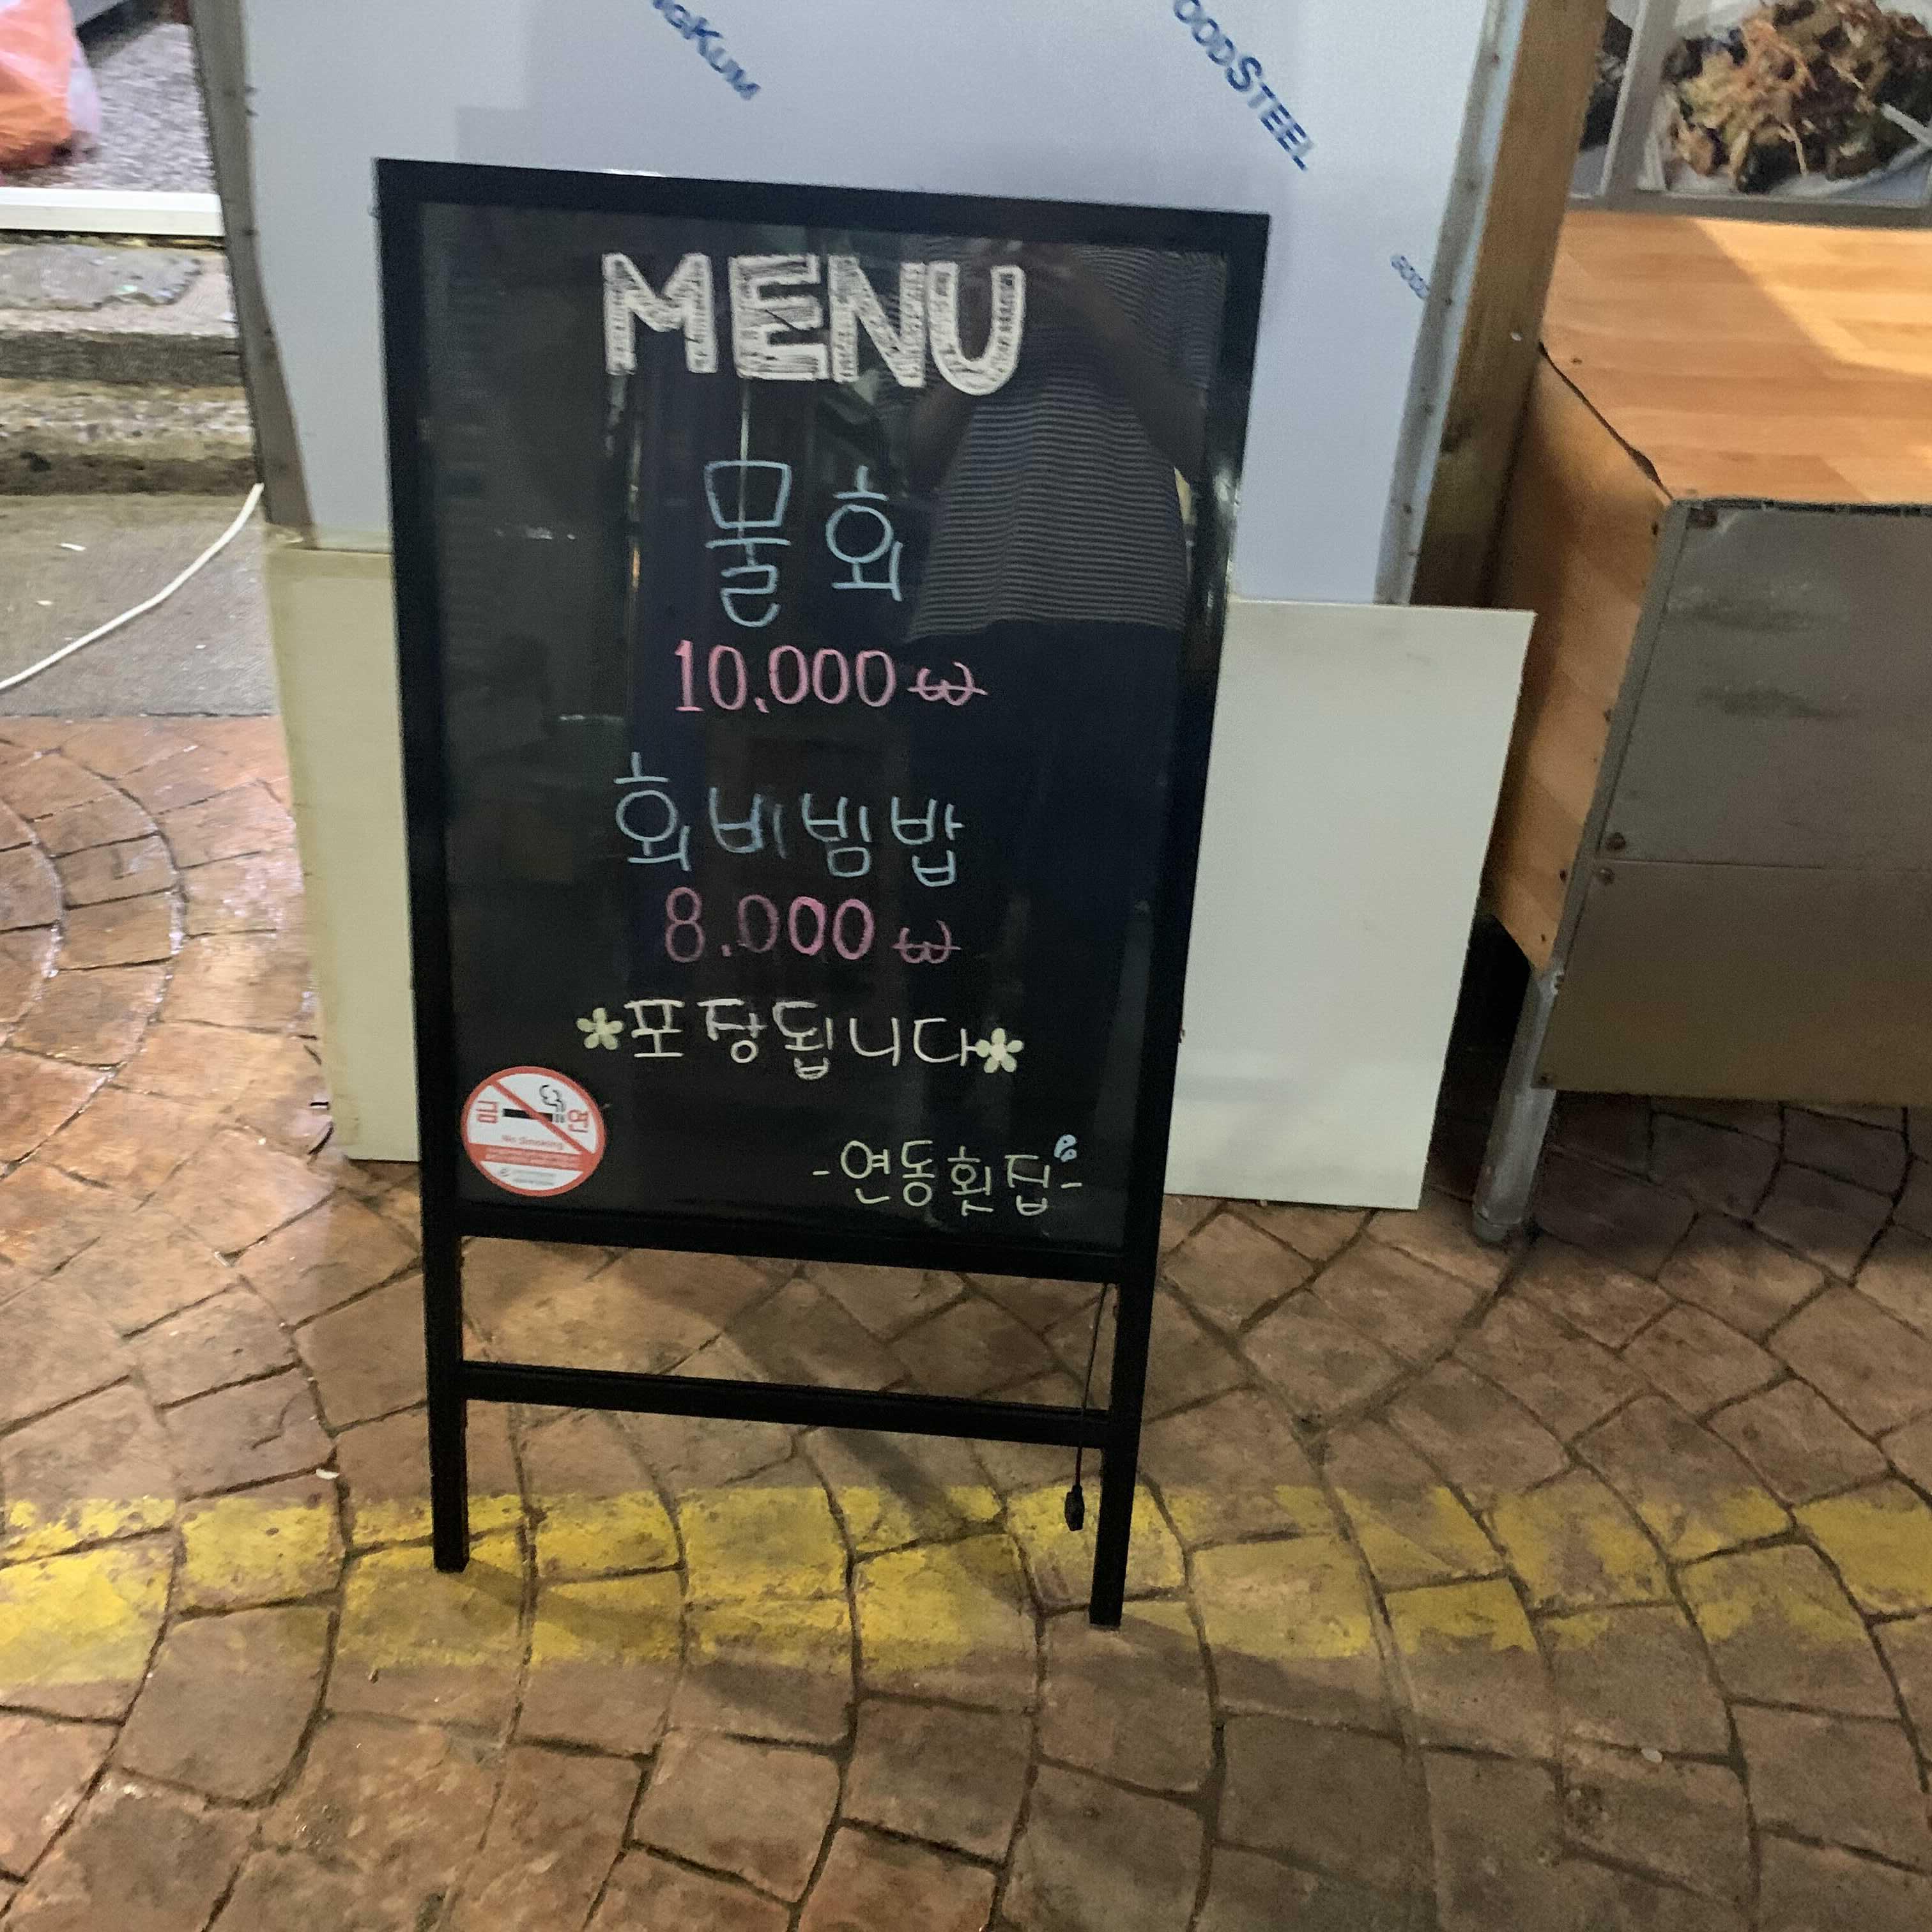 NGKUM
OODSTEEL
MENU
물회
10,000₩
회비빔밥
8.000₩
*포장됩니다*
금연
No Smoking
-연동횟집-